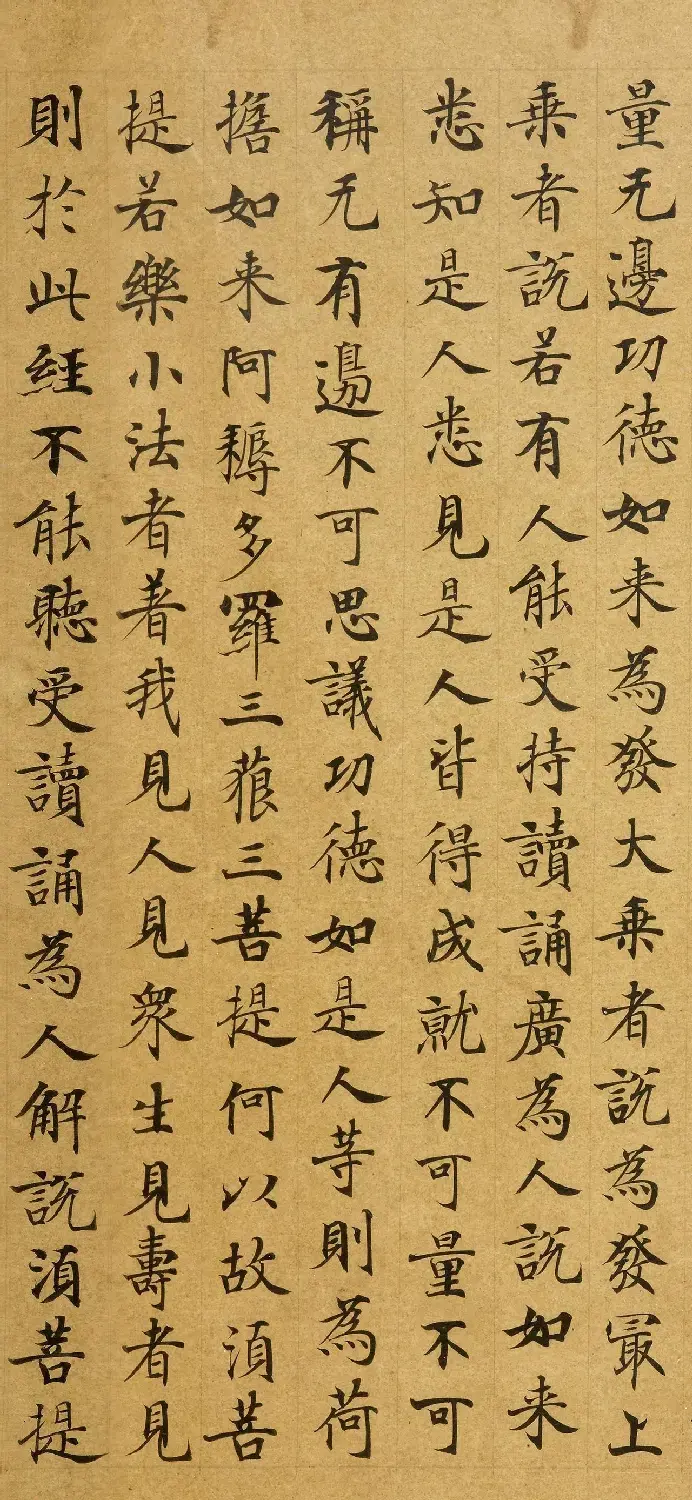 量无邊功德如来為發大乗者說為發冣上
乗者說若有人能受持讀誦廣為人說如来
悉知是人悉見是人皆得成就不可量不可
稱无有邊不可思議功德如是人䓁則為荷
擔如来阿耨多羅三藐三菩提何以故湏菩
提若樂小法者着我見人見眾生見壽者見
則於此經不能聽受讀誦為人解說湏菩提